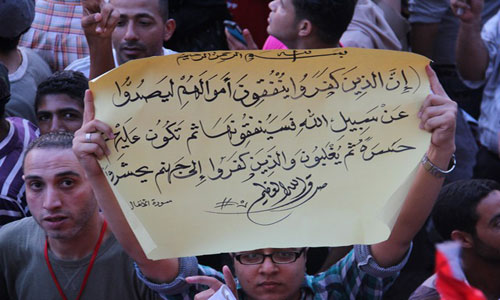 بسم الله الرحمن الرحيم
(إن الذين كفروا ينفقون أموالهم ليصدوا
عن سبيل الله فسينفقونها ثم تكون عليهم
حسرة ثم يغلبون والذين كفروا إلى جهنم يحشرون)
صدق الله العظيم
سورة الأنفال